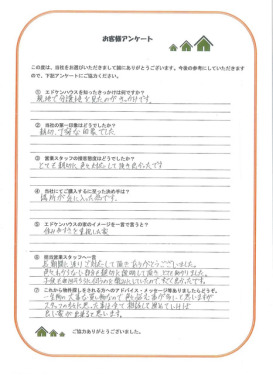 お客様アンケート
この度は、当社をお選びいただきまして誠にありがとうございます。今後の参考にしていただきます
ので、下記アンケートにご協力ください。
① エドケンハウスを知ったきっかけは何ですか？
現地で分譲地を見たのがきっかけです。
② 当社の第一印象はどうでしたか？
親切、丁寧な印象でした
③ 営業スタッフの接客態度はどうでしたか？
とても親切に色々対応して頂き良かったです
④ 当社にてご購入するに至った決め手は？
場所が気に入った為です。
⑤ エドケンハウスの家のイメージを一言で言うと？
住みやすさを重視した家
⑥ 担当営業スタッフへ一言
長期間に渡りご対応して頂きありがとうございました。
⑦ これから物件探しをされる方へのアドバイス・メッセージ等ありましたらどうぞ。
一生物の大きな買い物なので色々悩む事が多いと思いますが
スタッフの方に思った事は全て相談して進めていけば
良い家が出来ると思います。
ご協力ありがとうございました。